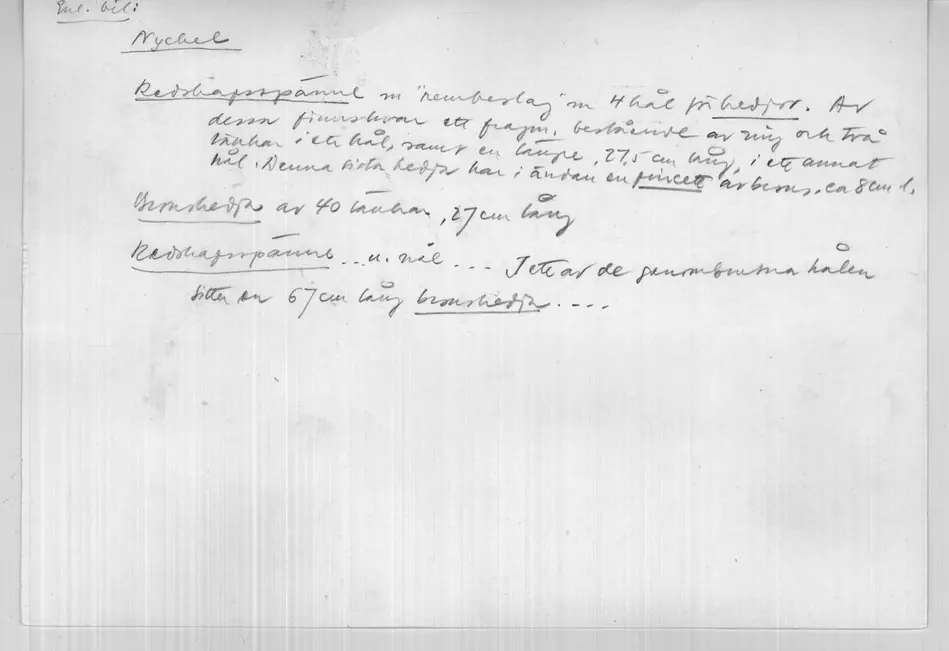 Enl. bil:
Nyckel
Redskapsspänne m "rembeslag" m 4 hål för kedjor. Av
dessa finns kvar ett fragm. bestående av ring och två
länkar i ett hål, samt en längre, 27,5 cm lång, i ett annat
hål. Denna sista kedja har i ändan en pincett av brons, ca 8 cm l.
Bronskedja av 40 länkar, 27 cm lång
Redskapsspänne .. u. nål ... I ett av de genombrutna hålen
sitter en 67 cm lång bronskedja ....